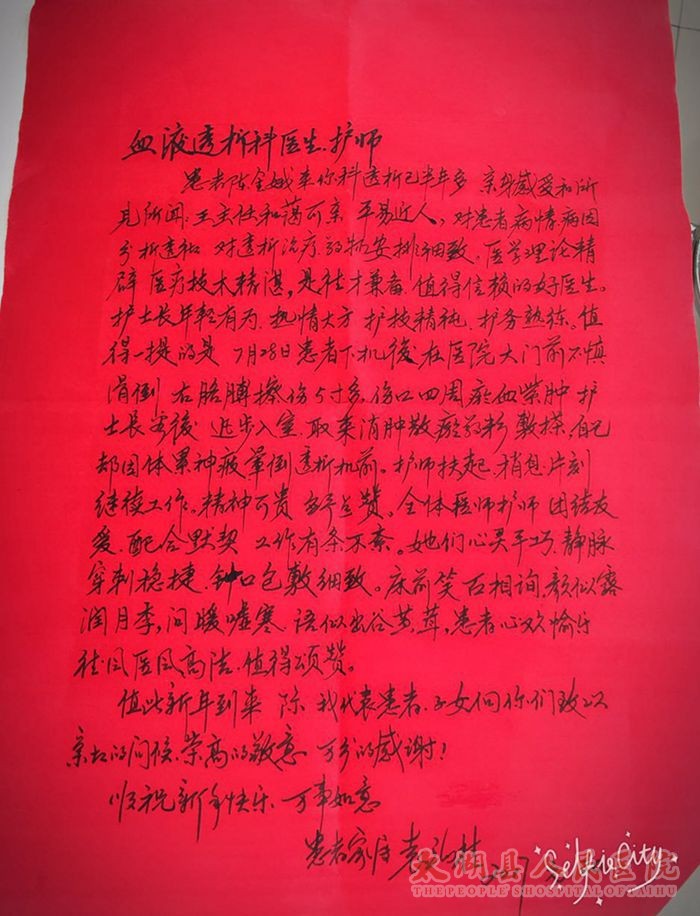 血液透析科医生、护师
患者陈金娥来你科透析已半年多 亲身感爱和所
见所闻:王主任和蔼可亲 平易近人,对患者病情病因
分析透切 对透析治疗药物安排细致。医学理论精
辟 医疗技术精湛,是德才兼备、值得信赖的好医生。
护士长年轻有为、热情大方 护技精纯、护务熟练。值
得一提的是 7月28日患者下机後在医院大门前不慎
滑倒 右胳膊擦伤5寸多,伤口四周瘀血紫肿 护
士长 後 近步入室、取来消肿散瘀药粉敷搽、自己
都因体累神疲晕倒透析机前。护师扶起、稍息片刻
继续工作。精神可贵 点赞。全体医师护师 团结友
爱、配合默契 工作有条不紊。她们心灵手巧、静脉
穿刺稳捷、 口包敷细致。床前笑 相询,颜似露
润月季,问暖嘘寒、语似出谷 ,患者心欢愉乐
德风医风高洁、值得颂赞。
值此新年到来 际 我代表患者、子女向你们致以
亲切的问候、崇高的敬意 万分的感谢!
顺祝新年快乐、万事如意
患者家属 林
太湖县人民医院
THE PEOPLE'S HOSPITAL OF TAIHU
SelfieCity